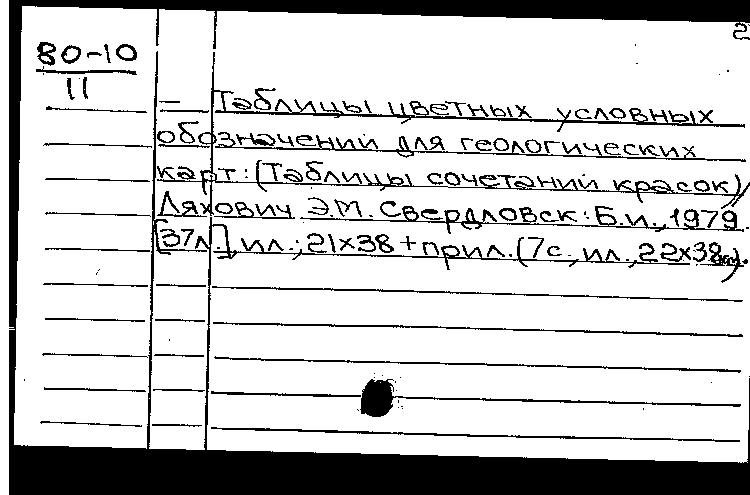 2
80-10
11
— Таблицы цветных условных
обозначений для геологических
карт: (Таблицы сочетаний красок)/
Ляхович Э.М. Свердловск: Б.и., 1979.
[37л.], ил.; 21x38 + прил. (7с., ил., 22x38см).